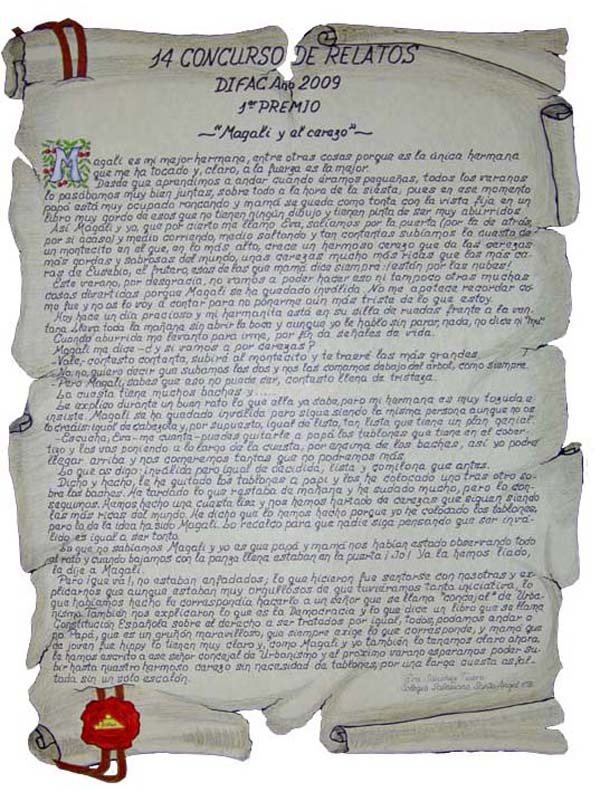 14 CONCURSO DE RELATOS
DIFAC Año 2009
1er PREMIO
~"Magali y el cerezo"~
Magali es mi mejor hermana, entre otras cosas porque es la única hermana
que me ha tocado y, claro, a la fuerza es la mejor.
Desde que aprendimos a andar cuando éramos pequeñas, todos los veranos
lo pasábamos muy bien juntas, sobre todo a la hora de la siesta, pues en ese momento
papá está muy ocupado roncando y mamá se queda como tonta con la vista fija en un
libro muy gordo de esos que no tienen ningún dibujo y tienen pinta de ser muy aburridos.
Así Magali y yo, que por cierto me llamo Eva, salíamos por la puerta (por la de atrás,
por si acaso) y medio corriendo, medio saltando y tan contentas subíamos la cuesta de
un montecito en el que, en lo más alto, crece un hermoso cerezo que da las cerezas
más gordas y sabrosas del mundo, unas cerezas mucho más ricas que las más ca-
ras de Eusebio, el frutero, esas de las que mamá dice siempre: ¡están por las nubes!
Este verano, por desgracia, no vamos a poder hacer eso ni tampoco otras muchas
cosas divertidas porque Magali se ha quedado inválida. No me apetece recordar có-
mo fue y no os lo voy a contar para no ponerme aún más triste de lo que estoy.
Hoy hace un día precioso y mi hermanita está en su silla de ruedas frente a la ven-
tana. Lleva toda la mañana sin abrir la boca y aunque yo le hablo sin parar, nada, no dice ni "mu"
Cuando aburrida me levanto para irme, por fin da señales de vida.
Magali me dice -¿y si vamos a por cerezas?
-Vale,-contesto contenta, subiré al montecito y te traeré las más grandes.
-No, no, quiero decir que subamos las dos y nos las comamos debajo del árbol, como siempre.
-Pero Magali, sabes que eso no puede ser, contesto llena de tristeza.
La cuesta tiene muchos baches y...
Le explico durante un buen rato lo que ella ya sabe, pero mi hermana es muy tozuda e
insiste. Magali se ha quedado inválida pero sigue siendo la misma persona aunque no os
lo creáis: igual de cabezota y, por supuesto, igual de lista, tan lista que tiene un plan genial.
-Escucha, Eva-me cuenta-puedes quitarle a papá los tablones que tiene en el cober-
tizo y los vas poniendo a lo largo de la cuesta, por encima de los baches, así yo podré
llegar arriba y nos comeremos tantas que no podremos más.
Lo que os digo: inválida pero igual de decidida, lista y comilona que antes.
Dicho y hecho, le he quitado los tablones a papi y los he colocado uno tras otro so-
bre los baches. He tardado lo que restaba de mañana y he sudado mucho, pero lo con-
seguimos. Hemos hecho una cuesta lisa y nos hemos hartado de cerezas que siguen siendo
las más ricas del mundo. He dicho que lo hemos hecho porque yo he colocado los tablones,
pero lo de la idea ha sido Magali. Lo recalco para que nadie siga pensando que ser invá-
lido es igual a ser tonto.
Lo que no sabíamos Magali y yo es que papá y mamá nos habían estado observando todo
el rato y cuando bajamos con la panza llena estaban en la puerta ¡Jo! Ya la hemos liado,
le dije a Magali.
Pero ¡que va!, no estaban enfadados; lo que hicieron fue sentarse con nosotras y ex-
plicarnos que aunque estaban muy orgullosos de que tuviéramos tanta iniciativa, lo
que habíamos hecho le correspondía hacerlo a un señor que se llama "concejal" de Urba-
nismo. También nos explicaron lo que es la Democracia y lo que dice un libro que se llama
Constitución Española sobre el derecho a ser tratados por igual, todos, podamos andar o
no. Papá, que es un gruñón maravilloso, que siempre exige lo que corresponde, y mamá que
de joven fue hippy lo tienen muy claro y, como Magali y yo también lo tenemos claro ahora,
le hemos escrito a ese señor concejal de Urbanismo y el próximo verano esperamos poder su-
bir hasta nuestro hermoso cerezo sin necesidad de tablones, por una larga cuesta asfal-
tada sin un solo escalón.
Colegio Salesiano Santo Ángel